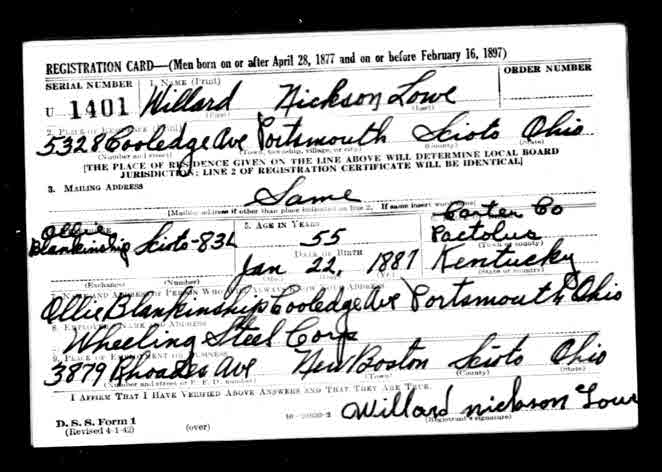 REGISTRATION CARD—(Men born on or after April 28, 1877 and on or before February 16, 1897)
SERIAL NUMBER 1. NAME (Print) ORDER NUMBER
U 1401 Willard Nickson Lowe
(First) (Last)
2. PLACE OF RESIDENCE (Print)
5328 Cooledge Ave Portsmouth Scioto Ohio
(Number and street) (Town, township, village, or city) (County) (State)
[THE PLACE OF RESIDENCE GIVEN ON THE LINE ABOVE WILL DETERMINE LOCAL BOARD
JURISDICTION; LINE 2 OF REGISTRATION CERTIFICATE WILL BE IDENTICAL]
3. MAILING ADDRESS
Same
[Mailing address if other than place indicated on line 2. If same insert word same]
5. AGE IN YEARS
Ollie Blankinship Scioto-83L 55 Carter Co
Pactolus
DATE OF BIRTH (Town or county)
Jan 22, 1887 Kentucky
(Exchange) (Number) (Yr.) (State or country)
7. NAME AND ADDRESS OF PERSON WHO WILL ALWAYS KNOW YOUR ADDRESS
Ollie Blankinship Cooledge Ave Portsmouth Ohio
8. EMPLOYER'S NAME AND ADDRESS
Wheeling Steel Corp
9. PLACE OF EMPLOYMENT OR BUSINESS
3879 Rhoades Ave New Boston Scioto Ohio
(Number and street or R. F. D. number) (Town) (County) (State)
I AFFIRM THAT I HAVE VERIFIED ABOVE ANSWERS AND THAT THEY ARE TRUE.
Willard nickson Lowe
D. S. S. Form 1 (Registrant's signature)
(Revised 4-1-42) (over)